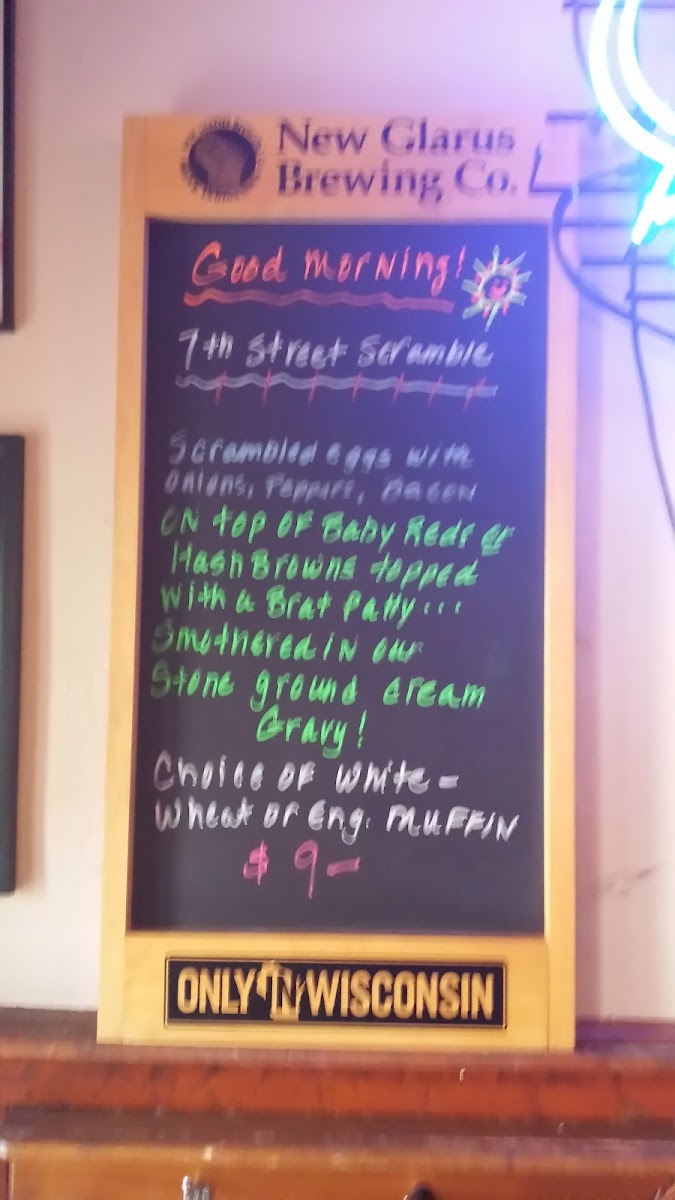 New Glarus
Brewing Co.
Good morning!
7th Street Scramble
Scrambled eggs with
onions, Peppers, Bacon
ON top OF Baby Reds or
Hash Browns topped
With a Brat Patty...
Smothered IN our
Stone ground cream
Gravy!
Choice OF White -
Wheat or Eng. MUFFIN
$ 9-
ONLY IN WISCONSIN